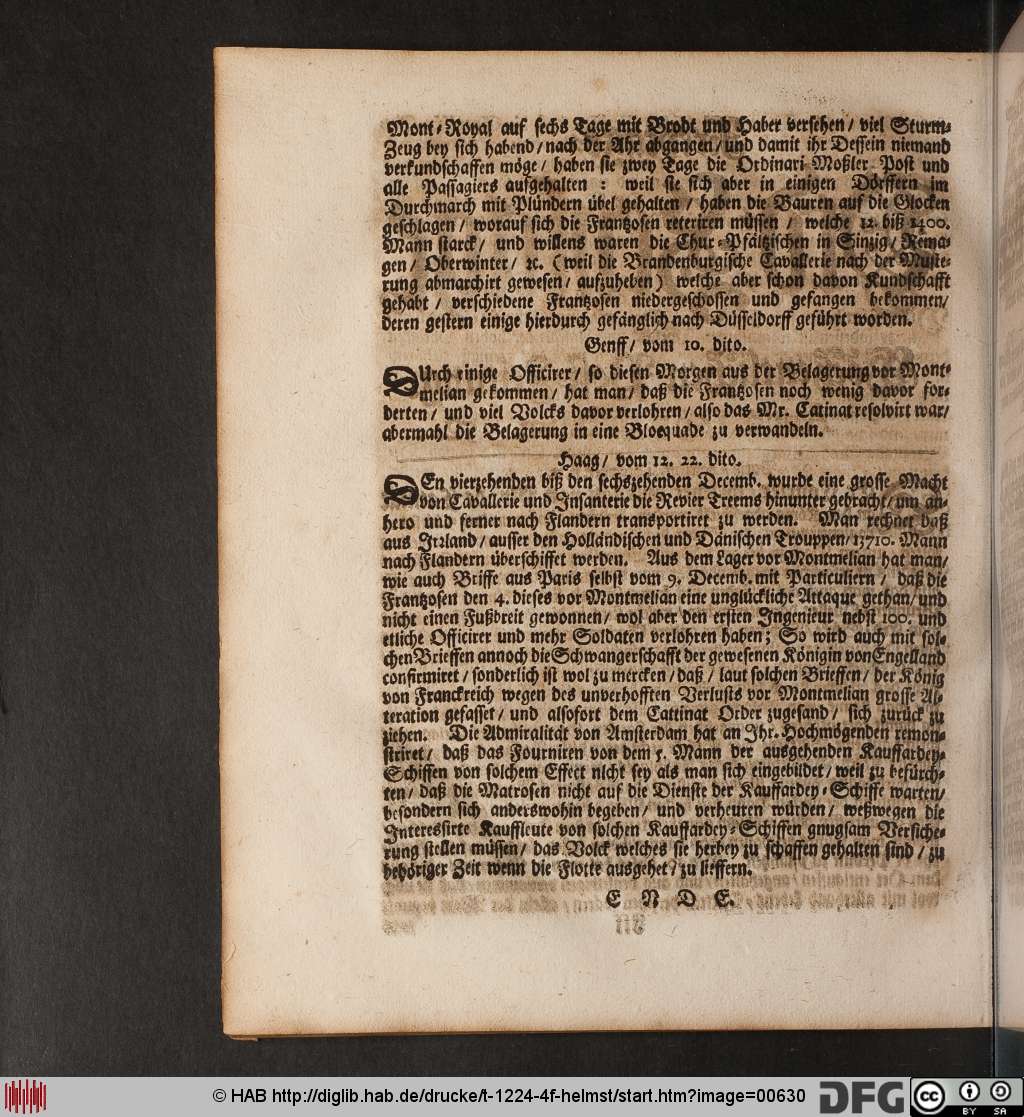 Mont-Royal auf sechs Tage mit Brodt und Haber versehen/ viel Sturm-
Zeug bey sich habend/ nach der Ahr abgangen/ und damit ihr Dessein niemand
verkundschaffen möge/ haben sie zwey Tage die Ordinari Moßler Post und
alle Passagiers aufgehalten : weil sie sich aber in einigen Dörffern im
Durchmarch mit Plündern übel gehalten / haben die Bauren auf die Glocken
geschlagen / worauf sich die Frantzosen reteriren müssen / welche 12. biß 1400.
Mann starck/ und willens waren die Chur-Pfältzischen in Sinzig/ Rema-
gen/ Oberwinter/ ꝛc. (weil die Brandenburgische Cavallerie nach der Muste-
rung abmarchirt gewesen/ aufzuheben) welche aber schon davon Kundschafft
gehabt / verschiedene Frantzosen niedergeschossen und gefangen bekommen/
deren gestern einige hierdurch gefänglich nach Düsseldorff geführt worden.
Genff/ vom 10. dito.
DUrch einige Officirer/ so diesen Morgen aus der Belagerung vor Mont-
melian gekommen/ hat man/ daß die Frantzosen noch wenig davor for-
derten/ und viel Volcks davor verlohren/ also das Mr. Catinat resolvirt war/
abermahl die Belagerung in eine Bloequade zu verwandeln.
Haag/ vom 12. 22. dito.
DEn vierzehenden biß den sechszehenden Decemb. wurde eine grosse Macht
von Cavallerie und Infanterie die Revier Treems hinunter gebracht/ um an-
hero und ferner nach Flandern transportiret zu werden. Man rechnet daß
aus Irrland/ ausser den Holländischen und Dänischen Trouppen/ 13710. Mann
nach Flandern überschiffet werden. Aus dem Lager vor Montmelian hat man/
wie auch Briffe aus Paris selbst vom 9. Decemb. mit Particuliern / daß die
Frantzosen den 4. dieses vor Montmelian eine unglückliche Attaque gethan/ und
nicht einen Fußbreit gewonnen/ wol aber den ersten Ingenieur nebst 100. und
etliche Officirer und mehr Soldaten verlohren haben; So wird auch mit sol-
chen Brieffen annoch die Schwangerschafft der gewesenen Königin von Engelland
confirmiret / sonderlich ist wol zu mercken/ daß/ laut solchen Brieffen/ der König
von Franckreich wegen des unverhofften Verlusts vor Montmelian grosse Al-
teration gefasset/ und alsofort dem Cattinat Order zugesand/ sich zurück zu
ziehen. Die Admiralität von Amsterdam hat an Ihr. Hochmögenden remon-
striret/ daß das Fourniren von dem 5. Mann der ausgehenden Kauffardey-
Schiffen von solchem Effect nicht sey als man sich eingebildet/ weil zu befürch-
ten/ daß die Matrosen nicht auf die Dienste der Kauffardey-Schiffe warten/
besondern sich anderswohin begeben/ und verheuren würden/ weßwegen die
Interessirte Kauffleute von solchen Kauffardey-Schiffen gnugsam Versiche-
rung stellen müssen/ das Volck welches sie herbey zu schaffen gehalten sind/ zu
behöriger Zeit wenn die Flotte ausgehet/ zu lieffern.
E N D E.
© HAB http://diglib.hab.de/drucke/t-1224-4f-helmst/start.htm?image=00630
DFG
cc
BY SA